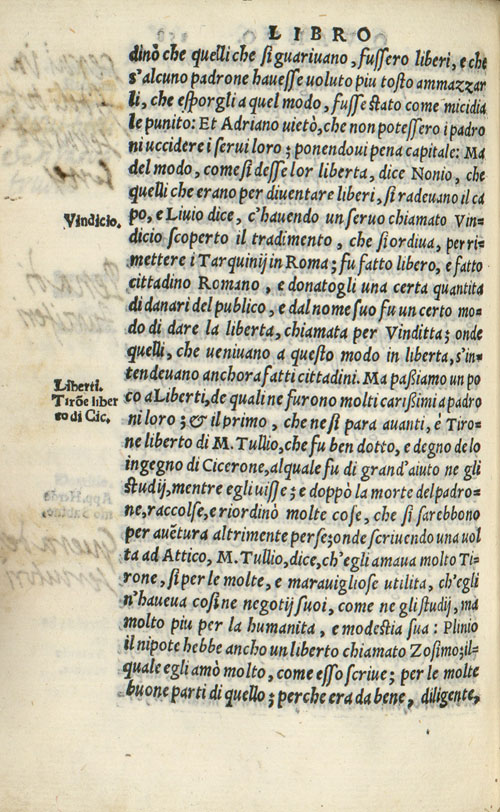 LIBRO
dinò che quelli che si guariuano, fussero liberi, e che
s'alcuno padrone hauesse uoluto piu tosto ammazzar
li, che esporgli a quel modo, fusse stato come micidia
le punito: Et Adriano uietò, che non potessero i padro
ni uccidere i serui loro; ponendoui pena capitale: Ma
del modo, come si desse lor liberta, dice Nonio, che
quelli che erano per diuentare liberi, si radeuano il ca
Vindicio.
po, e Liuio dice, c'hauendo un seruo chiamato Vin-
dicio scoperto il tradimento, che si ordiua, per ri-
mettere i Tarquinij in Roma; fu fatto libero, e fatto
cittadino Romano, e donatogli una certa quantita
di danari del publico, e dal nome suo fu un certo mo-
do di dare la liberta, chiamata per Vinditta; onde
quelli, che ueniuano a questo modo in liberta, s'in-
tendeuano anchora fatti cittadini. Ma paßiamo un po
Liberti.
Tirōe liber
to di Cic.
co a Liberti, de quali ne furono molti carißimi a padro
ni loro; & il primo, che ne si para auanti, è Tiro-
ne liberto di M. Tullio, che fu ben dotto, e degno de lo
ingegno di Cicerone, al quale fu di grand'aiuto ne gli
studij, mentre egli uisse; e doppò la morte del padro-
ne, raccolse, e riordinò molte cose, che si sarebbono
per auētura altrimente perse; onde scriuendo una uol
ta ad Attico, M. Tullio, dice, ch'egli amaua molto Ti-
rone, si per le molte, e marauigliose utilita, ch'egli
n'haueua cosi ne negotij suoi, come ne gli studij, ma
molto piu per la humanita, e modestia sua: Plinio
il nipote hebbe ancho un liberto chiamato Zosimo; il-
quale egli amò molto, come esso scriue; per le molte
buone parti di quello; perche era da bene, diligente,